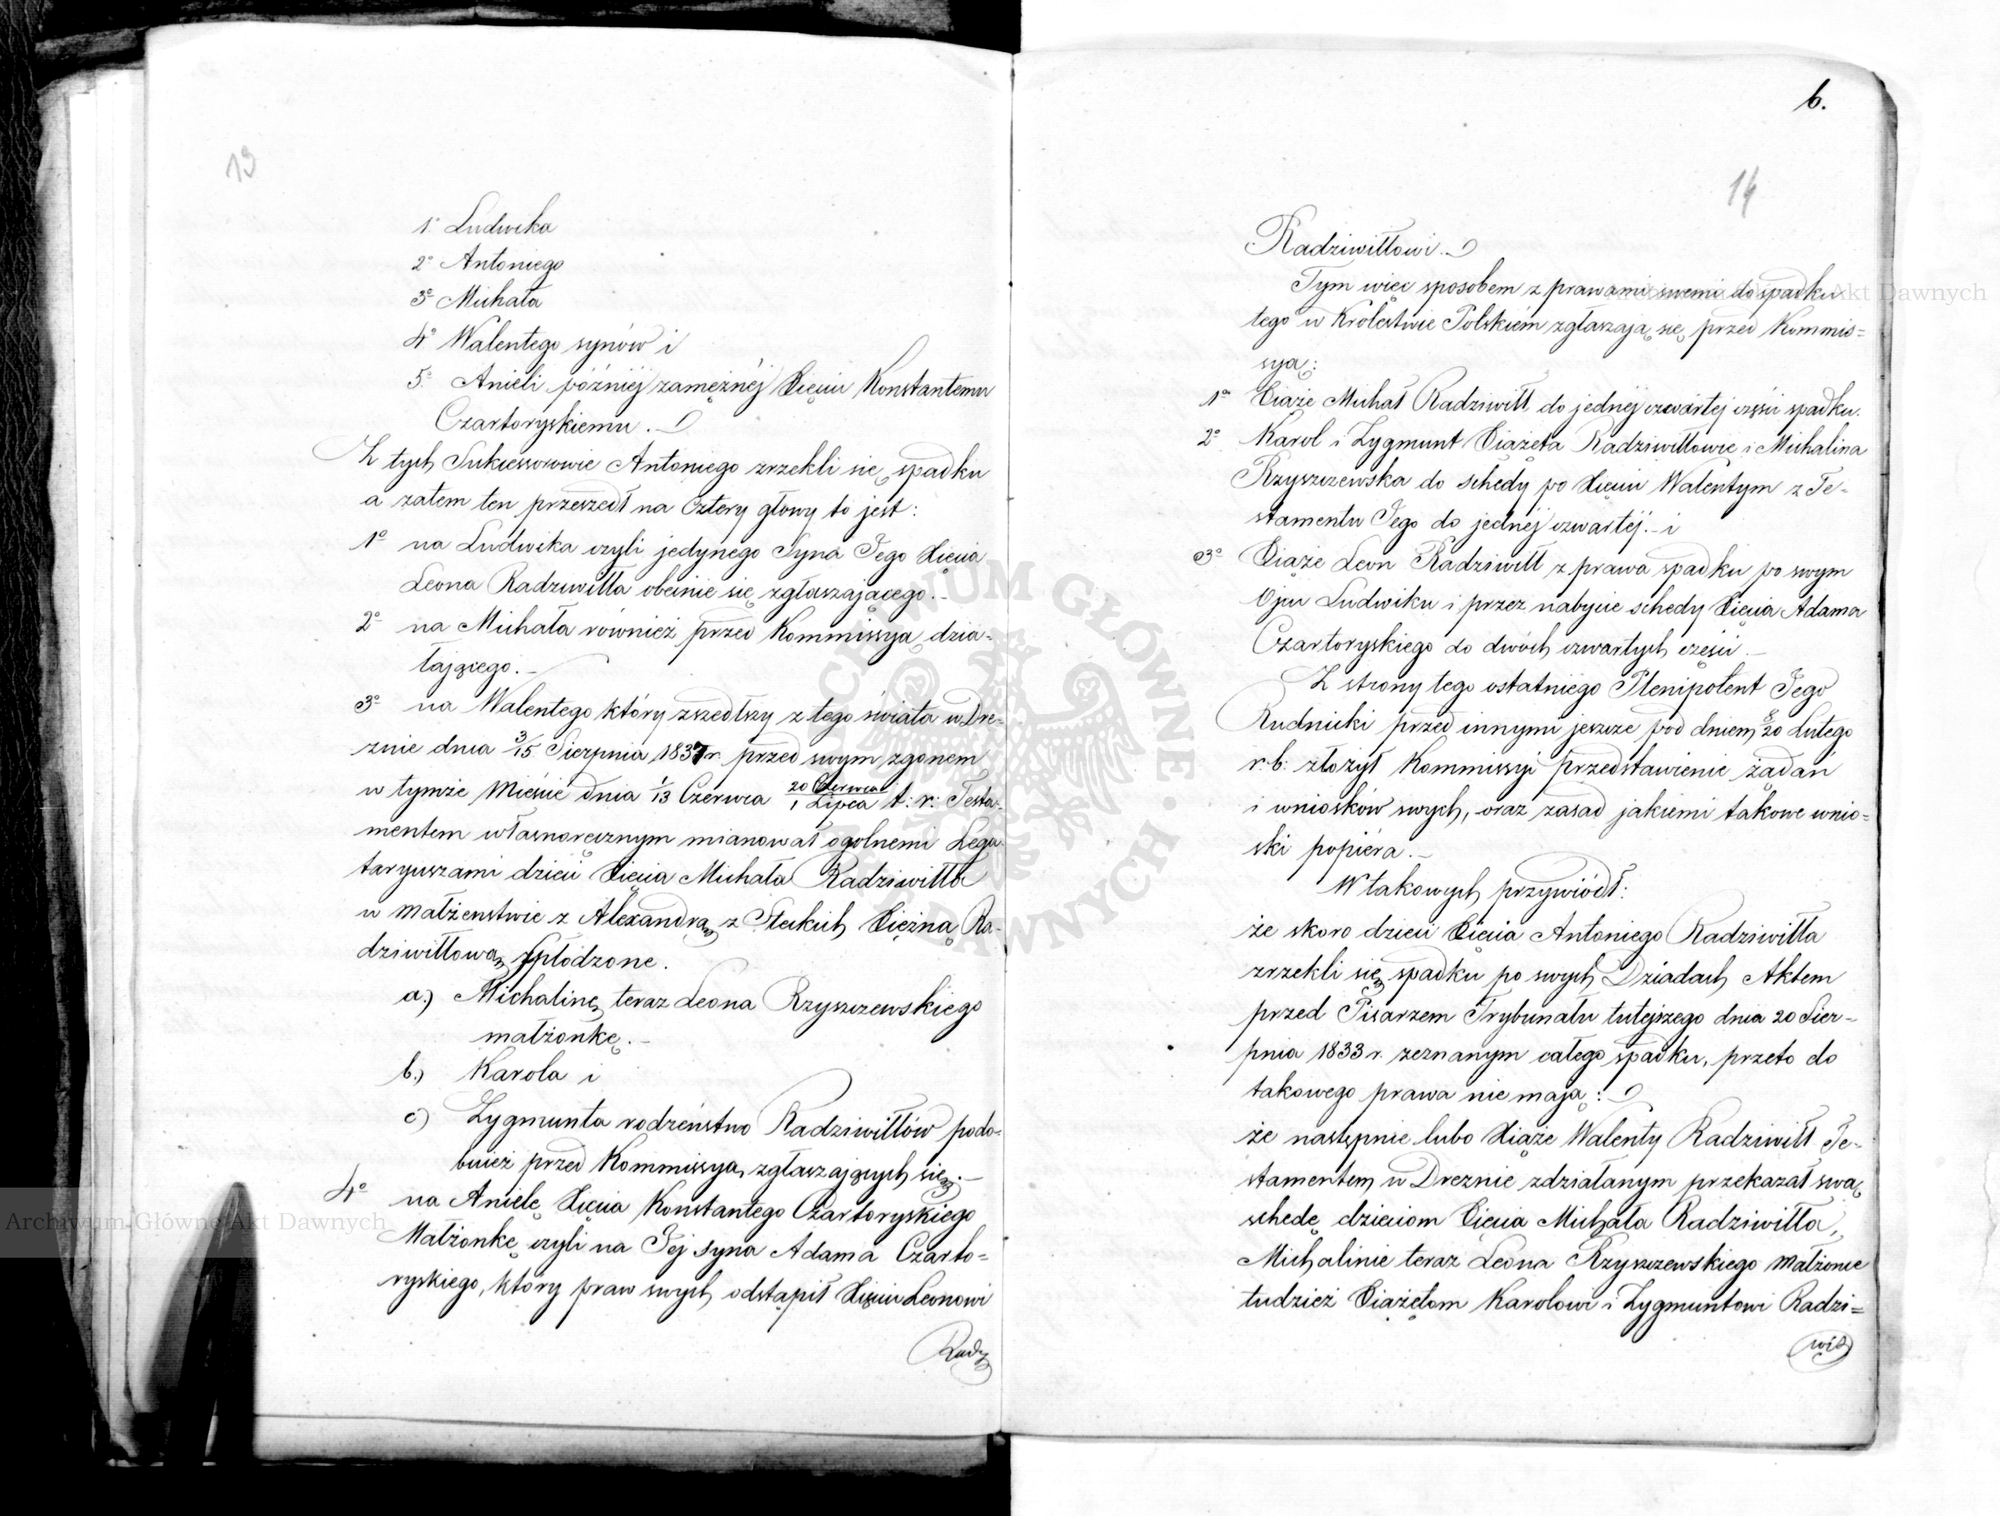 13
1° Ludwika
2° Antoniego
3° Michała
4° Walentego synów i
5° Anieli później zamężnéj Xięciu Konstantemu
Czartoryskiemu. —
Z tych Sukcessorowie Antoniego zrzekli się spadku
a zatem ten przeszedł na cztery głowy to jest:
1° na Ludwika czyli jedynego Syna Jego Xięcia
Leona Radziwiłła obecnie się zgłaszającego. —
2° na Michała również przed Kommissyą dzia-
łającego. —
3° na Walentego który zszedłszy z tego świata w Dre-
znie dnia 3/15 Sierpnia 1837 r. przed swym zgonem
w tymże Mieście dnia 1/13 Czerwca 20 Czerwca/1 Lipca t: r: Testa-
mentem własnoręcznym mianował ogólnemi Lega-
taryuszami dzieci Xięcia Michała Radziwiłła
w małżeństwie z Alexandrą z Steckich Xiężną Ra-
dziwiłłową spłodzone.
a.) Michalinę teraz Leona Rzyszczewskiego
małżonkę. —
b.) Karola i
c) Zygmunta rodzeństwo Radziwiłłów podo-
bnież przed Kommissyą zgłaszających się. —
4° na Anielę Xięcia Konstantego Czartoryskiego
Małżonkę czyli na Jej syna Adama Czarto-
ryskiego, który praw swych odstąpił Xięciu Leonowi
Radz
6.
14
Radziwiłłowi. —
Tym więc sposobem z prawami swemi do spadku
tego w Królestwie Polskiém zgłaszają się przed Kommis=
syą:
1° Xiąże Michał Radziwiłł do jednéj czwartéj części spadku.
2° Karol i Zygmunt Xiążęta Radziwiłłowie i Michalina
Rzyszczewska do schedy po Xięciu Walentym z Te-
stamentu Jego do jednéj czwartéj. — i
3° Xiąże Leon Radziwiłł z prawa spadku po swym
Ojcu Ludwiku i przez nabycie schedy Xięcia Adama
Czartoryskiego do dwóch czwartych części. —
Z strony tego ostatniego Plenipotent Jego
Rudnicki przed innymi jeszcze pod dniem 8/20 Lutego
r: b: złożył Kommissyi przedstawienie żądań
i wniosków swych, oraz zasad jakiemi takowe wnio=
ski popiéra. —
W takowych przywiódł:
że skoro dzieci Xięcia Antoniego Radziwiłła
zrzekli się spadku po swych Dziadach Aktem
przed Pisarzem Trybunału tutejszego dnia 20 Sier-
pnia 1833 r. zeznanym całego spadku, przeto do
takowego prawa nie mają: —
że następnie lubo Xiąże Walenty Radziwiłł Te-
stamentem w Dreznie zdziałanym przekazał swą
schedę dzieciom Xięcia Michała Radziwiłła,
Michalinie teraz Leona Rzyszczewskiego Małżonce
tudzież Xiążętom Karolowi i Zygmuntowi Radzi=
wił
Archiwum Główne Akt Dawnych